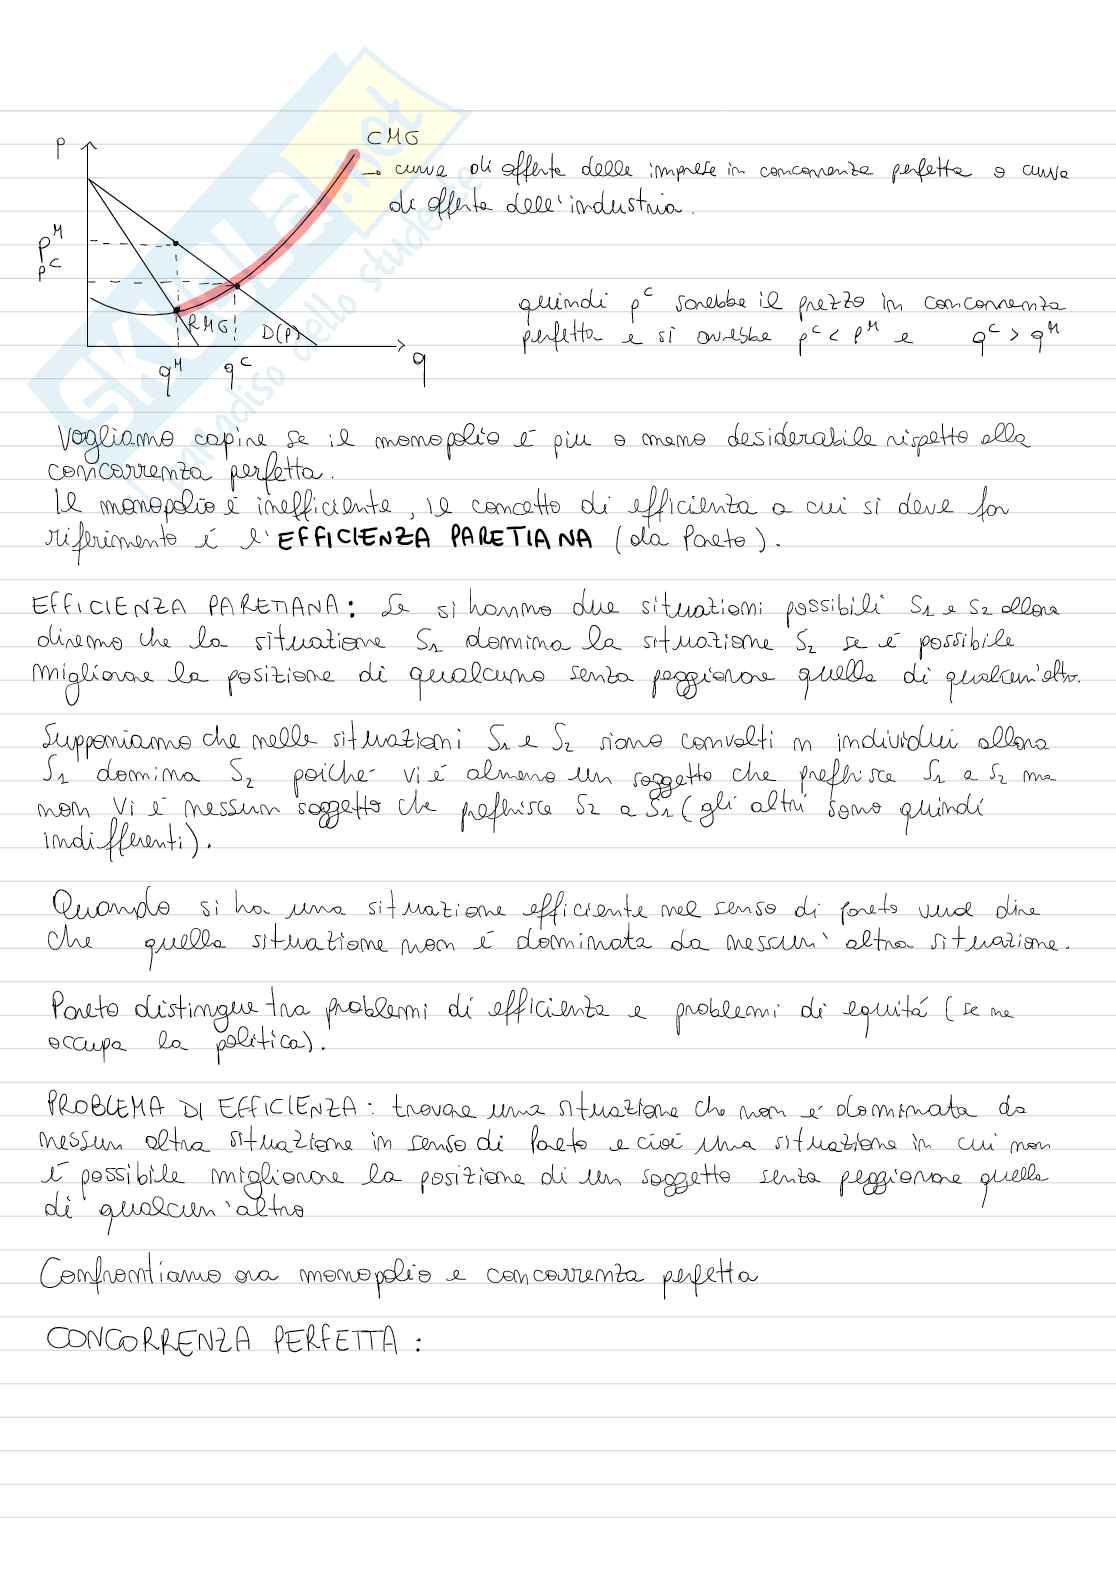 P
CMG
→ curva di offerta delle imprese in concorrenza perfetta o curva
di offerta dell'industria.
pᴹ
pᶜ
RMG
D(P)
qᴹ
qᶜ
q
quindi pᶜ sarebbe il prezzo in concorrenza
perfetta e si avrebbe pᶜ < pᴹ e qᶜ > qᴹ
Vogliamo capire se il monopolio é piu o meno desiderabile rispetto alla
concorrenza perfetta.
Il monopolio é inefficiente, il concetto di efficienza a cui si deve far
riferimento é l'EFFICIENZA PARETIANA (da Pareto).
EFFICIENZA PARETIANA: Se si hanno due situazioni possibili S₁ e S₂ allora
diremo che la situazione S₁ domina la situazione S₂ se é possibile
migliorare la posizione di qualcuno senza peggiorare quella di qualcun'altro.
Supponiamo che nelle situazioni S₁ e S₂ siano convolti n individui allora
S₁ domina S₂ poiché vi é almeno un soggetto che preferisce S₁ a S₂ ma
non vi é nessun soggetto che preferisce S₂ a S₁ (gli altri sono quindi
indifferenti).
Quando si ha una situazione efficiente nel senso di pareto vuol dire
che quella situazione non é dominata da nessun'altra situazione.
Pareto distingue tra problemi di efficienza e problemi di equitá (se ne
occupa la politica).
PROBLEMA DI EFFICIENZA: trovare una situazione che non é dominata da
nessun altra situazione in senso di Pareto e cioé una situazione in cui non
é possibile migliorare la posizione di un soggetto senza peggiorare quella
di qualcun'altro
Confrontiamo ora monopolio e concorrenza perfetta
CONCORRENZA PERFETTA:
SKUOLA.net
paradiso dello studente